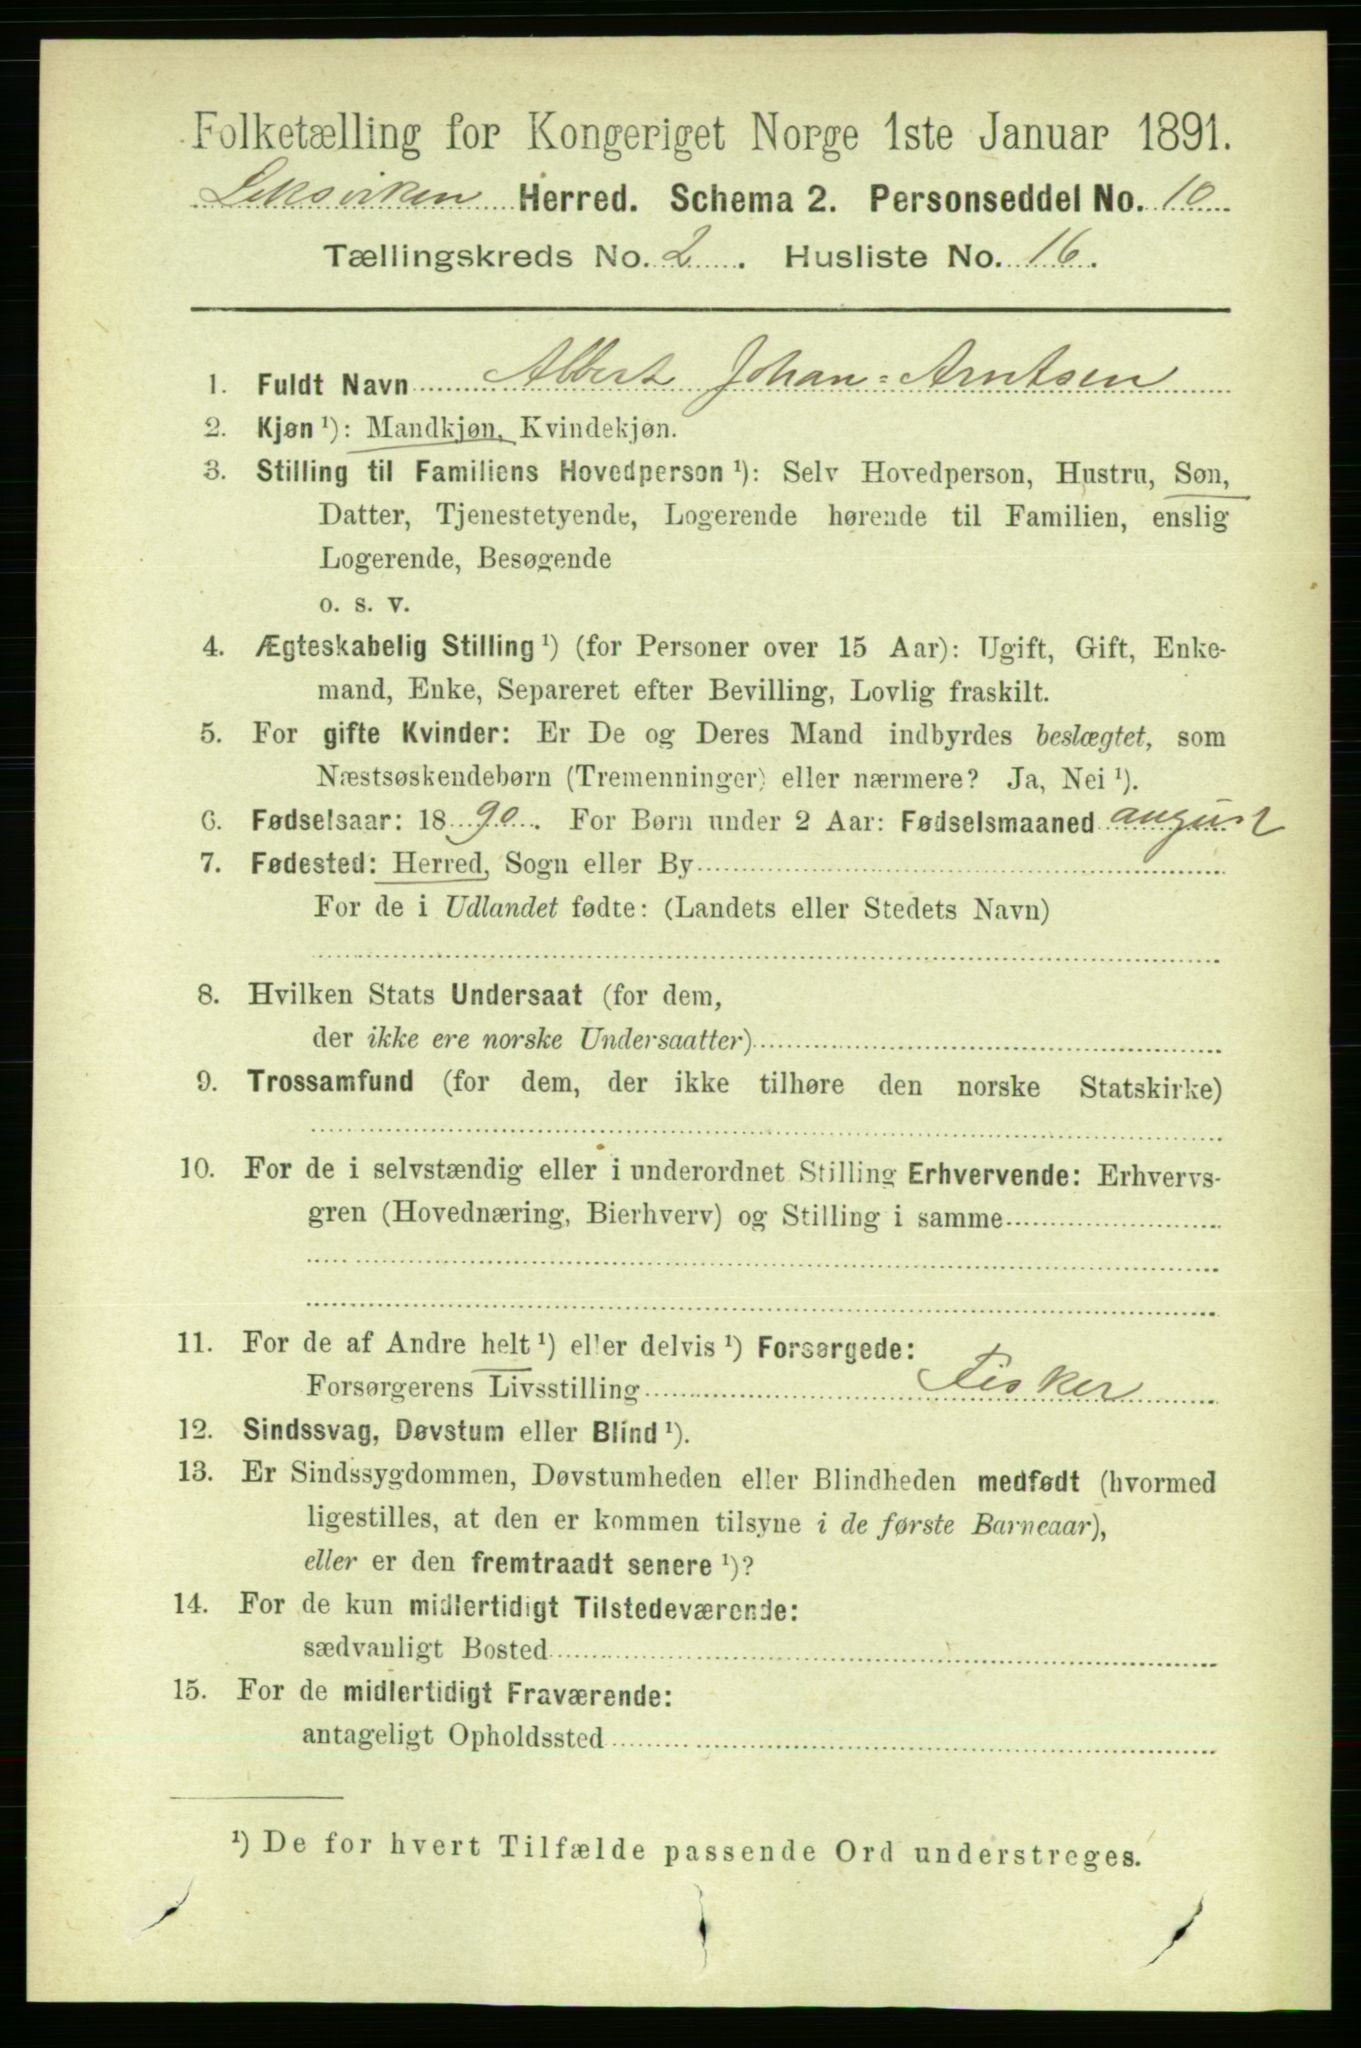 Folketælling for Kongeriget Norge 1ste Januar 1891.
Leksviken Herred. Schema 2. Personseddel No. 10
Tællingskreds No. 2. Husliste No. 16.
1. Fuldt Navn Albert Johan Arntsen
2. Kjøn ¹): Mandkjøn, Kvindekjøn.
3. Stilling til Familiens Hovedperson ¹): Selv Hovedperson, Hustru, Søn,
Datter, Tjenestetyende, Logerende hørende til Familien, enslig
Logerende, Besøgende
o. s. v.
4. Ægteskabelig Stilling ¹) (for Personer over 15 Aar): Ugift, Gift, Enke-
mand, Enke, Separeret efter Bevilling, Lovlig fraskilt.
5. For gifte Kvinder: Er De og Deres Mand indbyrdes beslægtet, som
Næstsøskendebørn (Tremenninger) eller nærmere? Ja, Nei ¹).
6. Fødselsaar: 1890. For Børn under 2 Aar: Fødselsmaaned august
7. Fødested: Herred, Sogn eller By
For de i Udlandet fødte: (Landets eller Stedets Navn)
8. Hvilken Stats Undersaat (for dem,
der ikke ere norske Undersaatter)
9. Trossamfund (for dem, der ikke tilhøre den norske Statskirke)
10. For de i selvstændig eller i underordnet Stilling Erhvervende: Erhvervs-
gren (Hovednæring, Bierhverv) og Stilling i samme
11. For de af Andre helt ¹) eller delvis ¹) Forsørgede:
Forsørgerens Livsstilling Fisker
12. Sindssvag, Døvstum eller Blind ¹).
13. Er Sindssygdommen, Døvstumheden eller Blindheden medfødt (hvormed
ligestilles, at den er kommen tilsyne i de første Barneaar),
eller er den fremtraadt senere ¹)?
14. For de kun midlertidigt Tilstedeværende:
sædvanligt Bosted
15. For de midlertidigt Fraværende:
antageligt Opholdssted
¹) De for hvert Tilfælde passende Ord understreges.